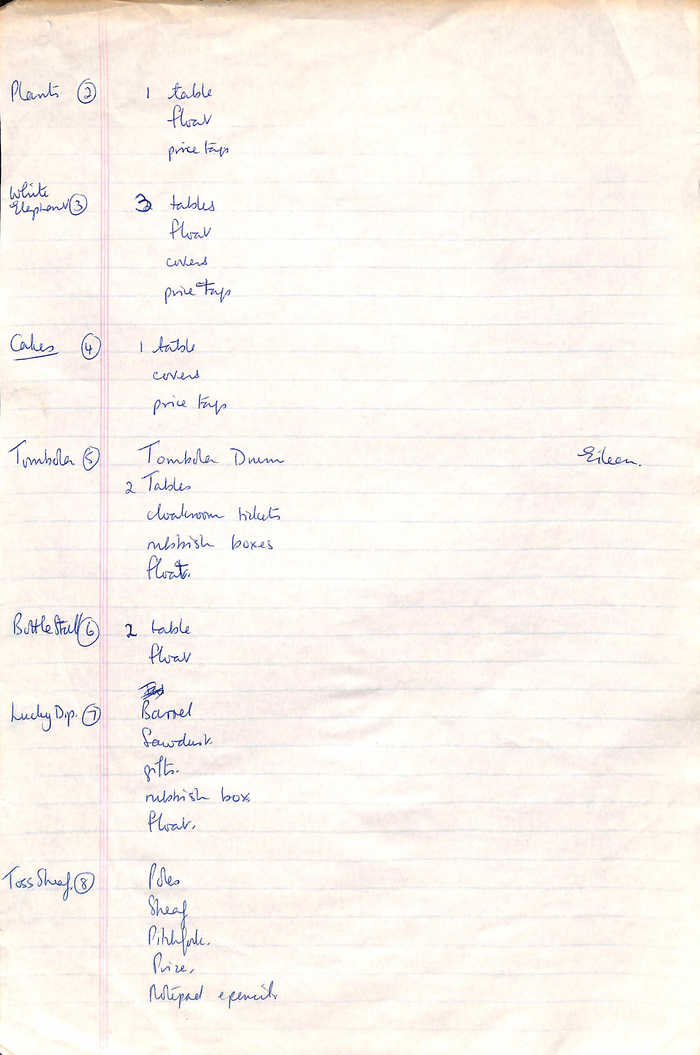 Plants ② 1 table
float
price tags
White
Elephant ③ 3 tables
float
covers
price tags
Cakes ④ 1 table
covers
price tags
Tombola ⑤ Tombola Drum Eileen.
2 Tables
cloakroom tickets
rubbish boxes
float.
Bottle Stall ⑥ 2 table
float
Lucky Dip. ⑦ Barrel
Sawdust.
gifts.
rubbish box.
float.
Toss Sheaf. ⑧ Poles
Sheaf
Pitchfork.
Prize.
Notepad & pencils